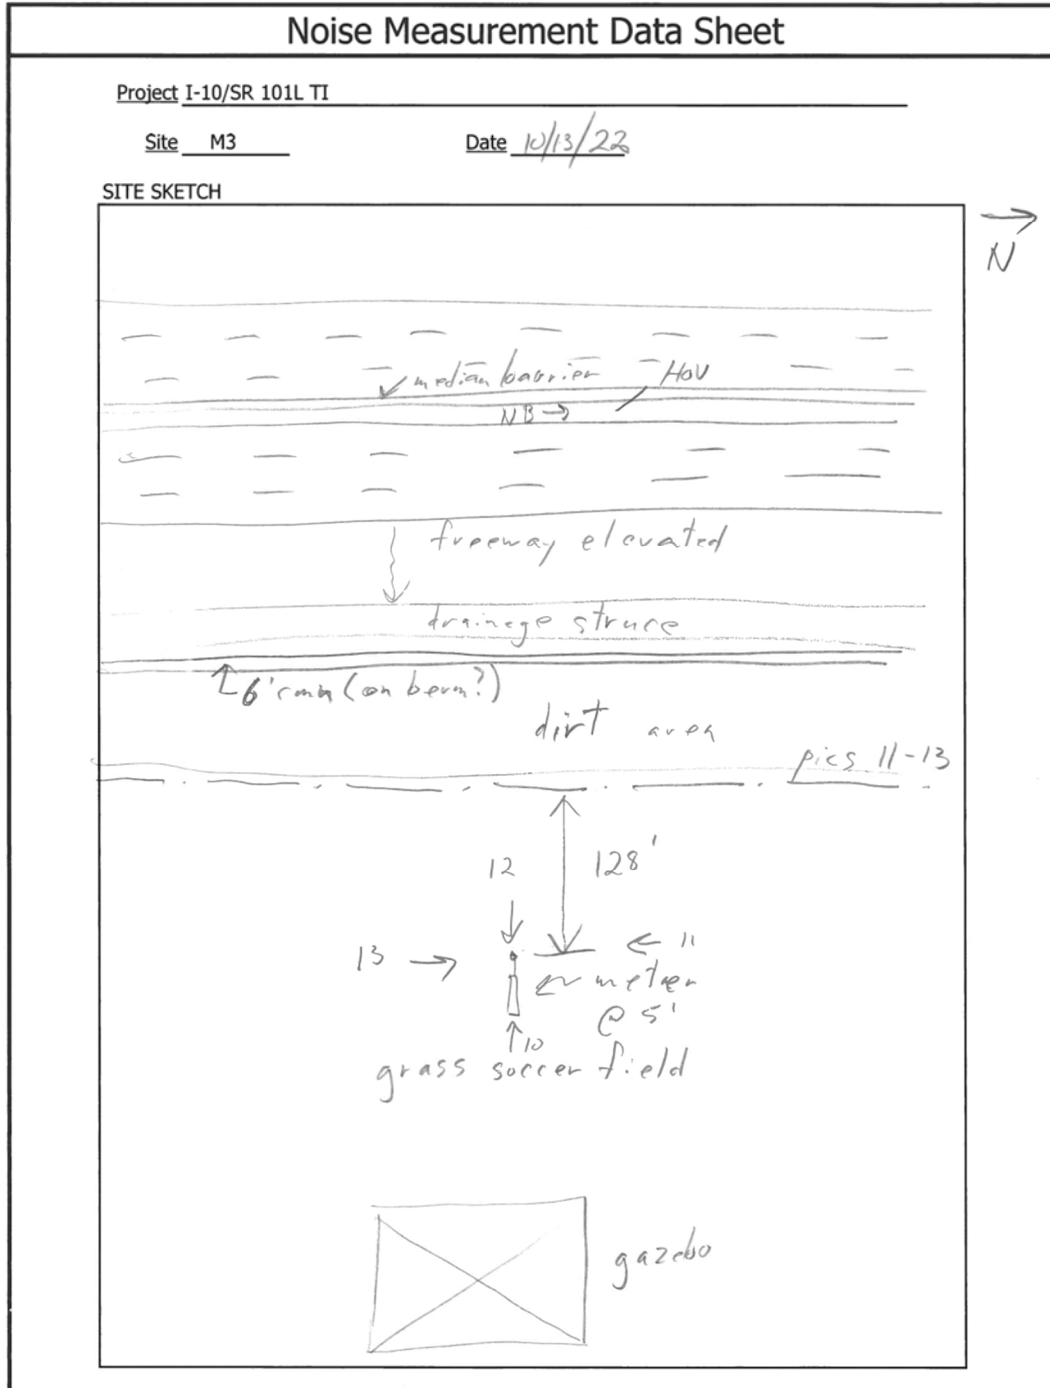 Noise Measurement Data Sheet
Project I-10/SR 101L TI
Site M3 Date 10/13/22
SITE SKETCH
N
median barrier HOV
NB →
freeway elevated
drainage struce
6' cmu (on berm?)
dirt area
pics 11-13
12 128'
13 → ← 11
← meter
@ 5'
↑ 10
grass soccer field
gazebo